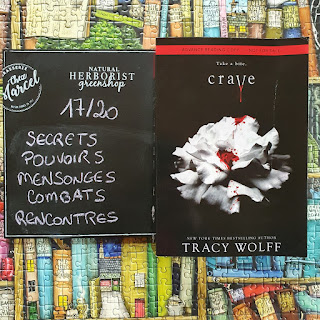 BRASSERIE
Chez
Marcel
NATURAL
HERBORIST
greenshop
17/20
SECRETS
POUVOIRS
MENSONGES
COMBATS
RENCONTRES
Take a bite.
crave
NEW YORK TIMES BESTSELLING AUTHOR
TRACY WOLFF